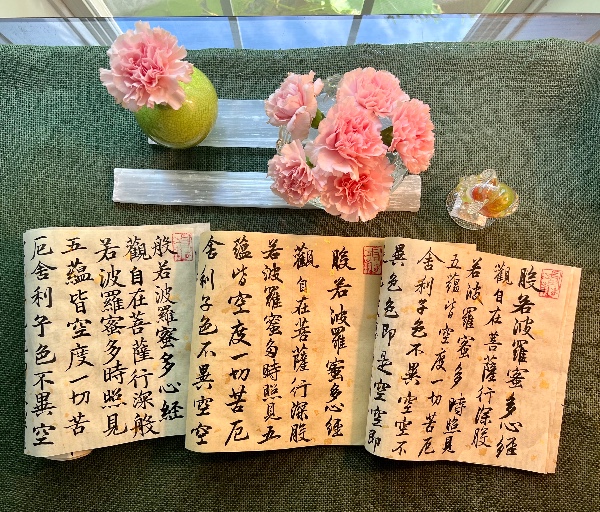 般若波羅蜜多心經
觀自在菩薩行深般
若波羅蜜多時照見
五蘊皆空度一切苦
厄舍利子色不異空
般若波羅蜜多心經
觀自在菩薩行深般
若波羅蜜多時照見五
蘊皆空度一切苦厄
舍利子色不異空空
般若波羅蜜多心經
觀自在菩薩行深般
若波羅蜜多時照見
五蘊皆空度一切苦厄
舍利子色不異空空不
異色色即是空空即